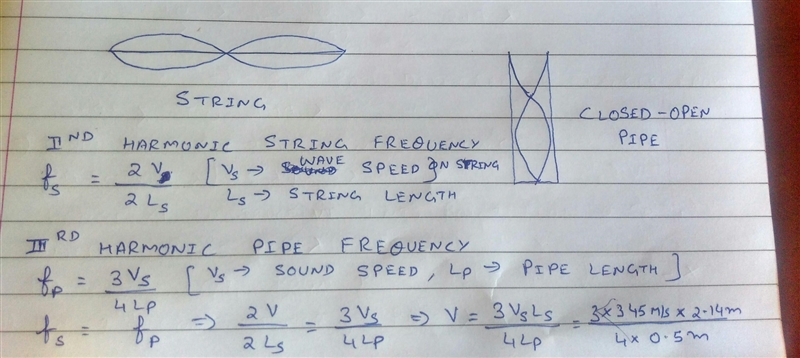 STRING
CLOSED-OPEN
PIPE
II ND HARMONIC STRING FREQUENCY
fs = 2 V / 2 Ls [ Vs → WAVE SPEED ] ON STRING
Ls → STRING LENGTH
III RD HARMONIC PIPE FREQUENCY
fp = 3 Vs / 4 LP [ Vs → SOUND SPEED, LP → PIPE LENGTH ]
fs = fp ⇒ 2 V / 2 Ls = 3 Vs / 4 LP ⇒ V = 3 Vs Ls / 4 LP = 3 × 345 m/s × 2.14 m / 4 × 0.5 m